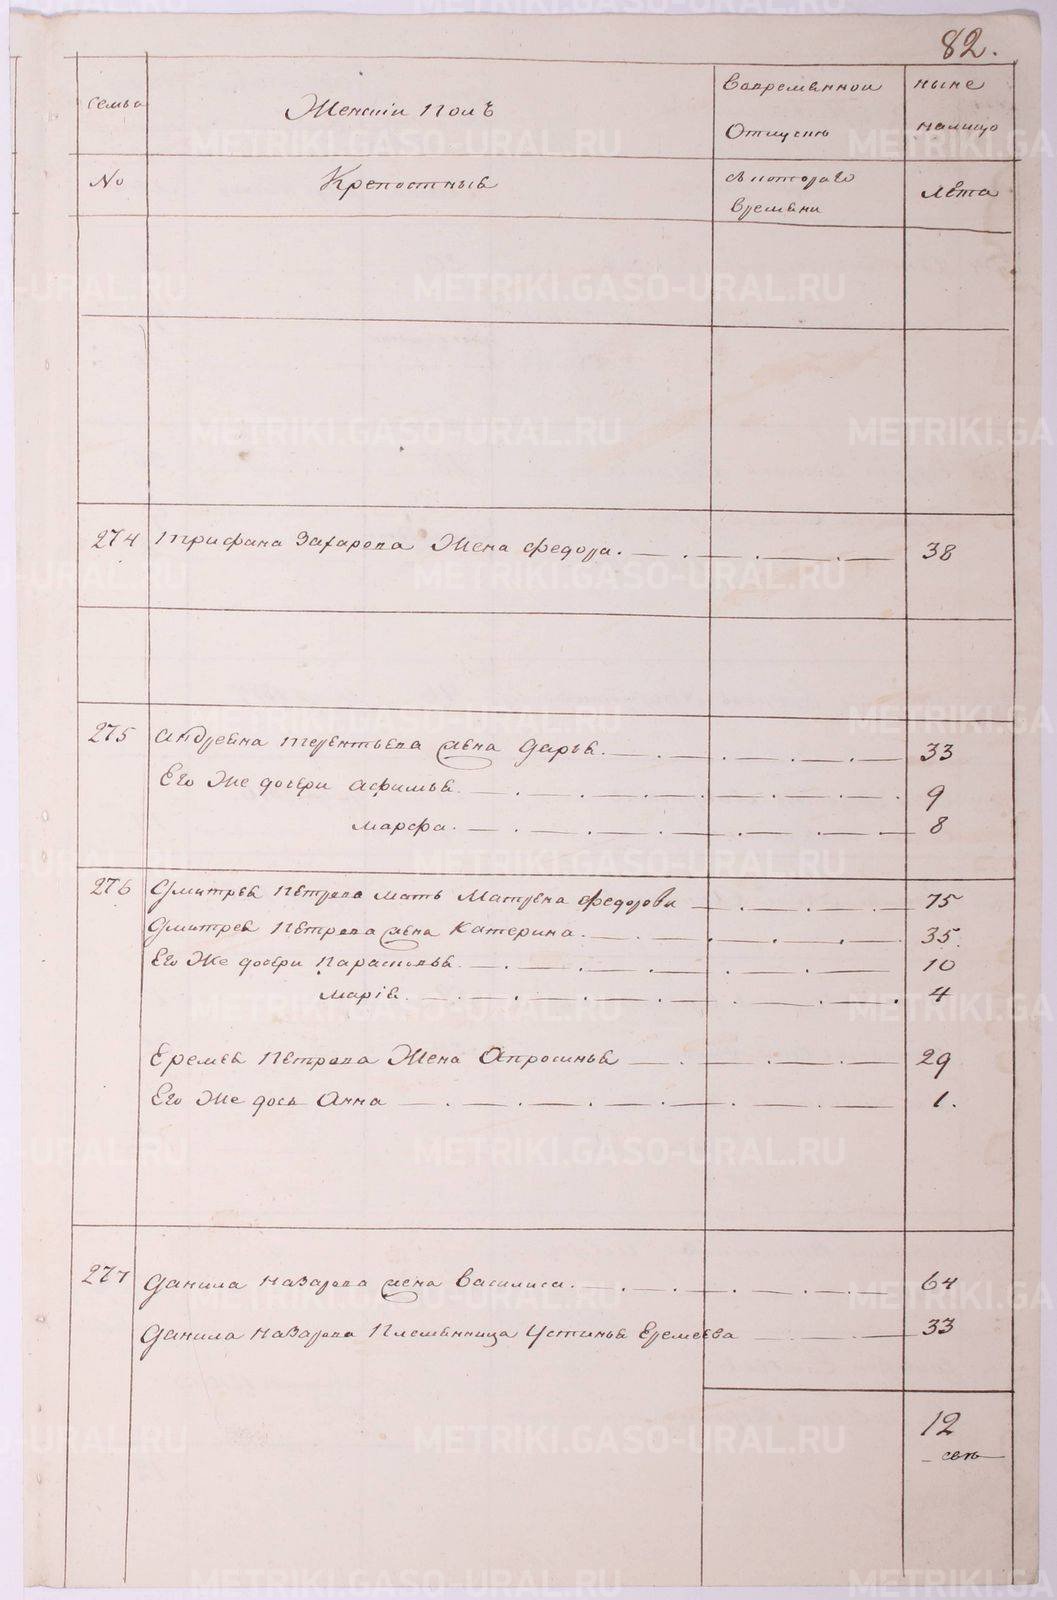 82.
семья
Женскiй Полъ
Вопременной
ныне
Отлучке
налицо
No
Крепостныя
съ котораго
Лета
времени
274 Трифана Захарова Жена Федора. 38
275 Андреяна Терентьева жена Дарья. 33
Его Же дочери Афимья. 9
Марфа. 8
276 Дмитрея Петрова мать Матрена Федорова 75
Дмитрея Петрова жена Катерина. 35.
Его Же дочери Парасковья. 10
Марiя. 4
Еремея Петрова Жена Апросинья 29
Его Же дочь Анна 1.
277 Данила Назарова жена Василиса. 64
Данила Назарова Племянница Устинья Еремеева 33
12
METRIKI.GASO-URAL.RU